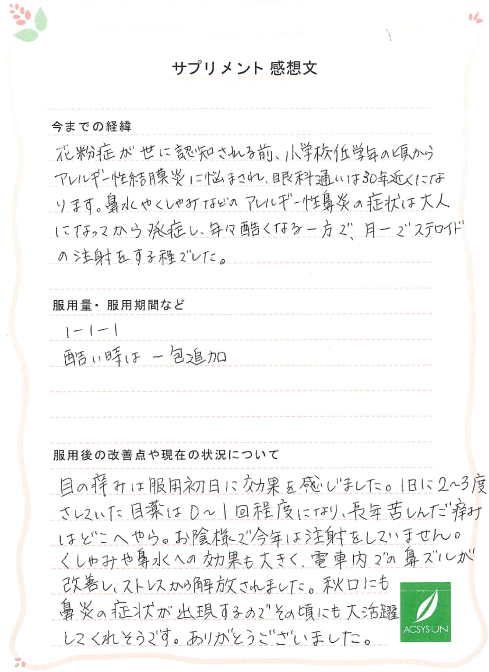 サプリメント 感想文
今までの経緯
花粉症が世に認知される前、小学校低学年の頃から
アレルギー性結膜炎に悩まされ、眼科通いは30年近くにな
ります。鼻水やくしゃみなどのアレルギー性鼻炎の症状は大人
になってから発症し、年々酷くなる一方で、月一でステロイド
の注射をする程でした。
服用量・服用期間など
1-1-1
酷い時は 一包追加
服用後の改善点や現在の状況について
目の痒みは服用初日に効果を感じました。1日に2~3度
さしていた目薬は0~1回程度になり、長年苦しんだ痒み
はどこへやら。お陰様で今年は注射をしていません。
くしゃみや鼻水への効果も大きく、電車内での鼻ズルが
改善し、ストレスから解放されました。秋口にも
鼻炎の症状が出現するのでその頃にも大活躍
してくれそうです。ありがとうございました。
ACSYSUN